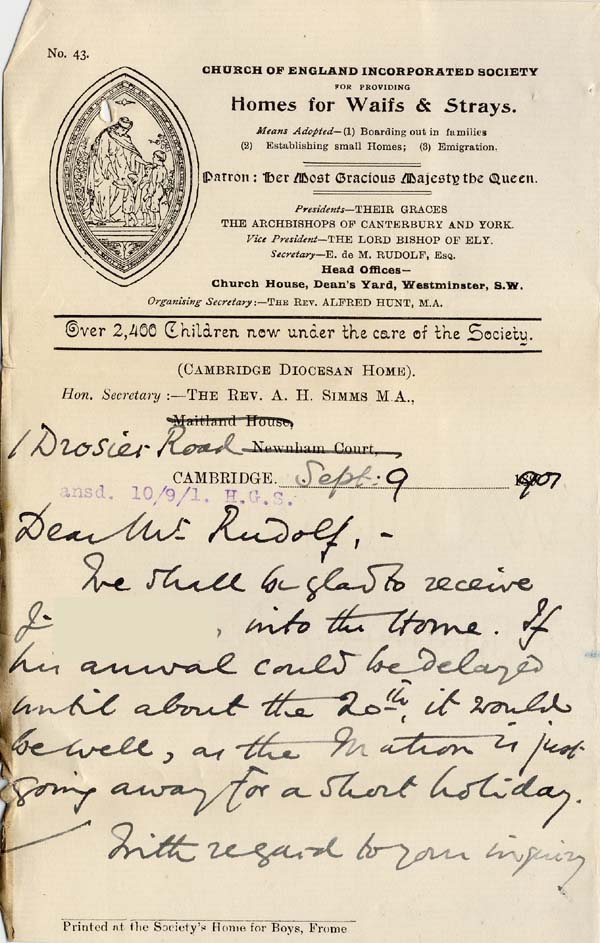 No. 43.
CHURCH OF ENGLAND INCORPORATED SOCIETY
FOR PROVIDING
Homes for Waifs & Strays.
Means Adopted—(1) Boarding out in families
(2) Establishing small Homes; (3) Emigration.
Patron: Her Most Gracious Majesty the Queen.
Presidents—THEIR GRACES
THE ARCHBISHOPS OF CANTERBURY AND YORK.
Vice President—THE LORD BISHOP OF ELY.
Secretary—E. de M. RUDOLF, ESQ.
Head Offices—
Church House, Dean's Yard, Westminster, S.W.
Organising Secretary:—THE REV. ALFRED HUNT, M.A.
Over 2,400 Children now under the care of the Society.
(CAMBRIDGE DIOCESAN HOME).
Hon. Secretary:—THE REV. A. H. SIMMS M.A.,
Maitland House,
1 Drosier Road Newnham Court,
CAMBRIDGE. Sept: 9 1901
ansd. 10/9/1. H.G.S.
Dear Mr. Rudolf, -
We shall be glad to receive
J- , into the Home. If
his arrival could be delayed
until about the 20th, it would
be well, as the Matron is just
going away for a short holiday.
With regard to your inquiry
Printed at the Society's Home for Boys, Frome